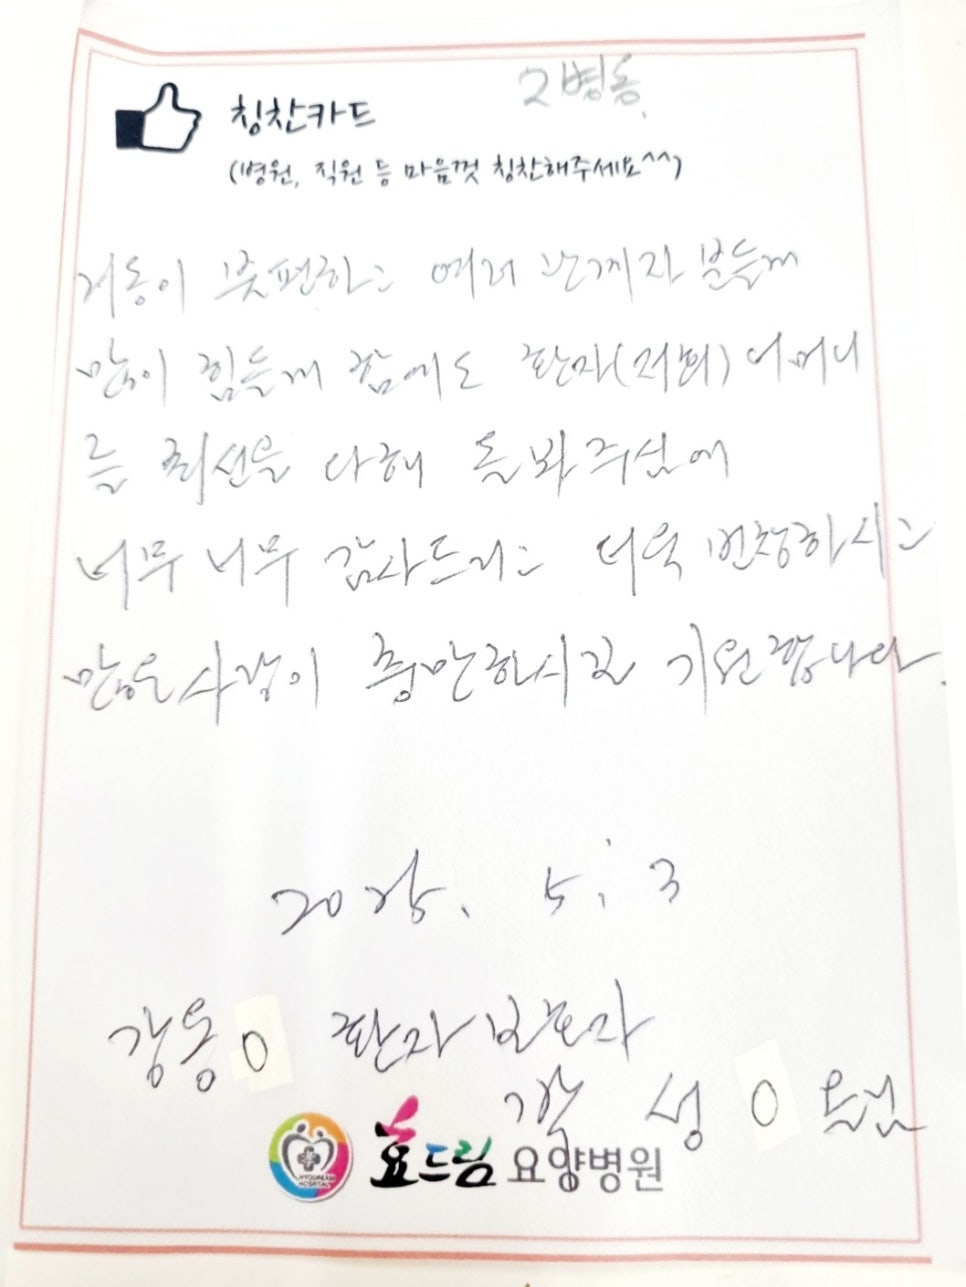 2병동.
칭찬카드
(병원, 직원 등 마음껏 칭찬해주세요^^)
거동이 불편하는 여러 환자 분들께
많이 힘들게 함에도 환자(저희) 어머니
를 최선을 다해 돌봐주심에
너무 너무 감사드리는 더욱 번창하시는
많은 사랑이 충만하시길 기원합니다.
2025. 5. 3
강동O 환자 보호자
성 O
HYODREAM HOSPITAL
효드림 요양병원